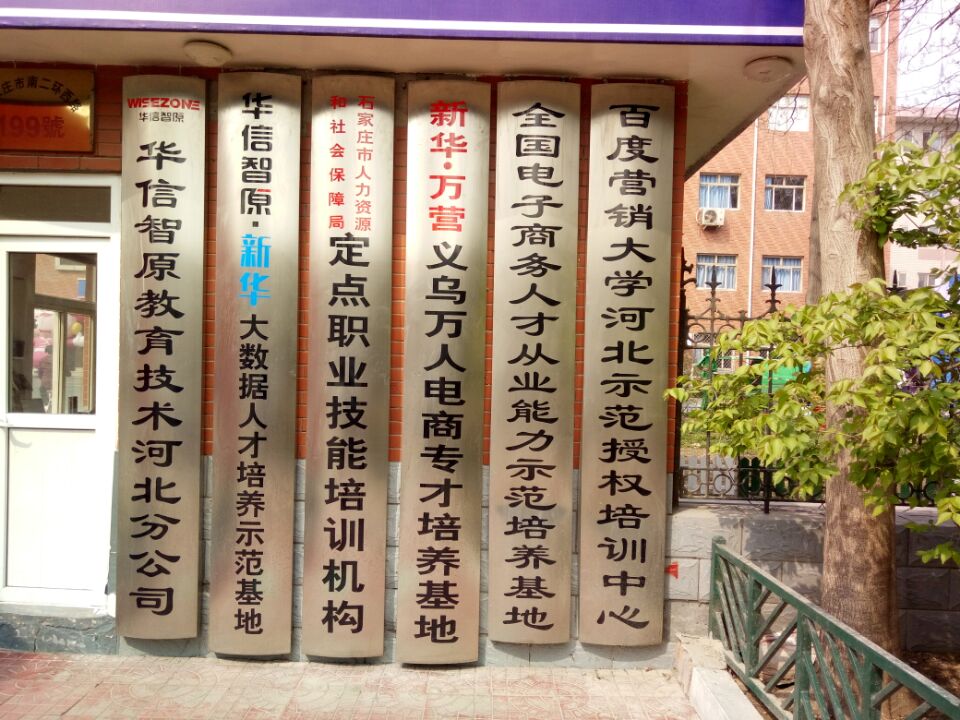 庄市南二环西路
199號
WISEZONE
华信智原
华信智原教育技术河北分公司
华信智原·新华大数据人才培养示范基地
石家庄市人力资源
和社会保障局
定点职业技能培训机构
新华·万营义乌万人电商专才培养基地
全国电子商务人才从业能力示范培养基地
百度营销大学河北示范授权培训中心